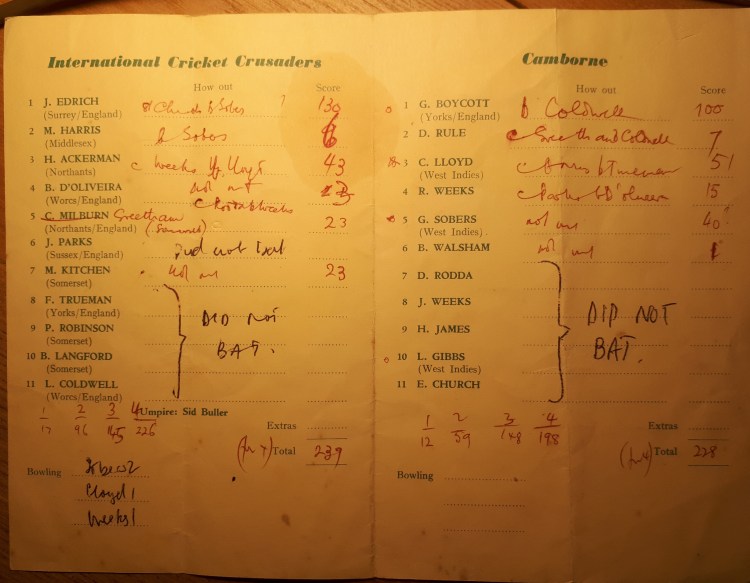 International Cricket Crusaders
How out Score
1 J. EDRICH c Church b Sobers 130
(Surrey/England)
2 M. HARRIS b Sobers 6
(Middlesex)
3 H. ACKERMAN c Weeks b Lloyd 43
(Northants)
4 B. D'OLIVEIRA not out
(Worcs/England) c b Weeks
5 C. MILBURN 23
(Northants/England)
6 J. PARKS Did not bat
(Sussex/England)
7 M. KITCHEN not out 23
(Somerset)
8 F. TRUEMAN
(Yorks/England) DID NOT
9 P. ROBINSON
(Somerset) BAT.
10 B. LANGFORD
(Somerset)
11 L. COLDWELL
(Worcs/England)
1 2 3 4 Umpire: Sid Buller
12 96 145 226
Extras
Total 239
Bowling Sobers 2
Lloyd 1
Weeks 1
Camborne
How out Score
1 G. BOYCOTT b Coldwell 100
(Yorks/England)
2 D. RULE c and Coldwell 7
3 C. LLOYD c b Trueman 51
(West Indies)
4 R. WEEKS c Parks b D'oliveira 15
5 G. SOBERS not out 40
(West Indies)
6 B. WALSHAM not out 1
7 D. RODDA
8 J. WEEKS DID NOT
9 H. JAMES BAT.
10 L. GIBBS
(West Indies)
11 E. CHURCH
1 2 3 4
12 59 148 198
Extras
Total 228
Bowling